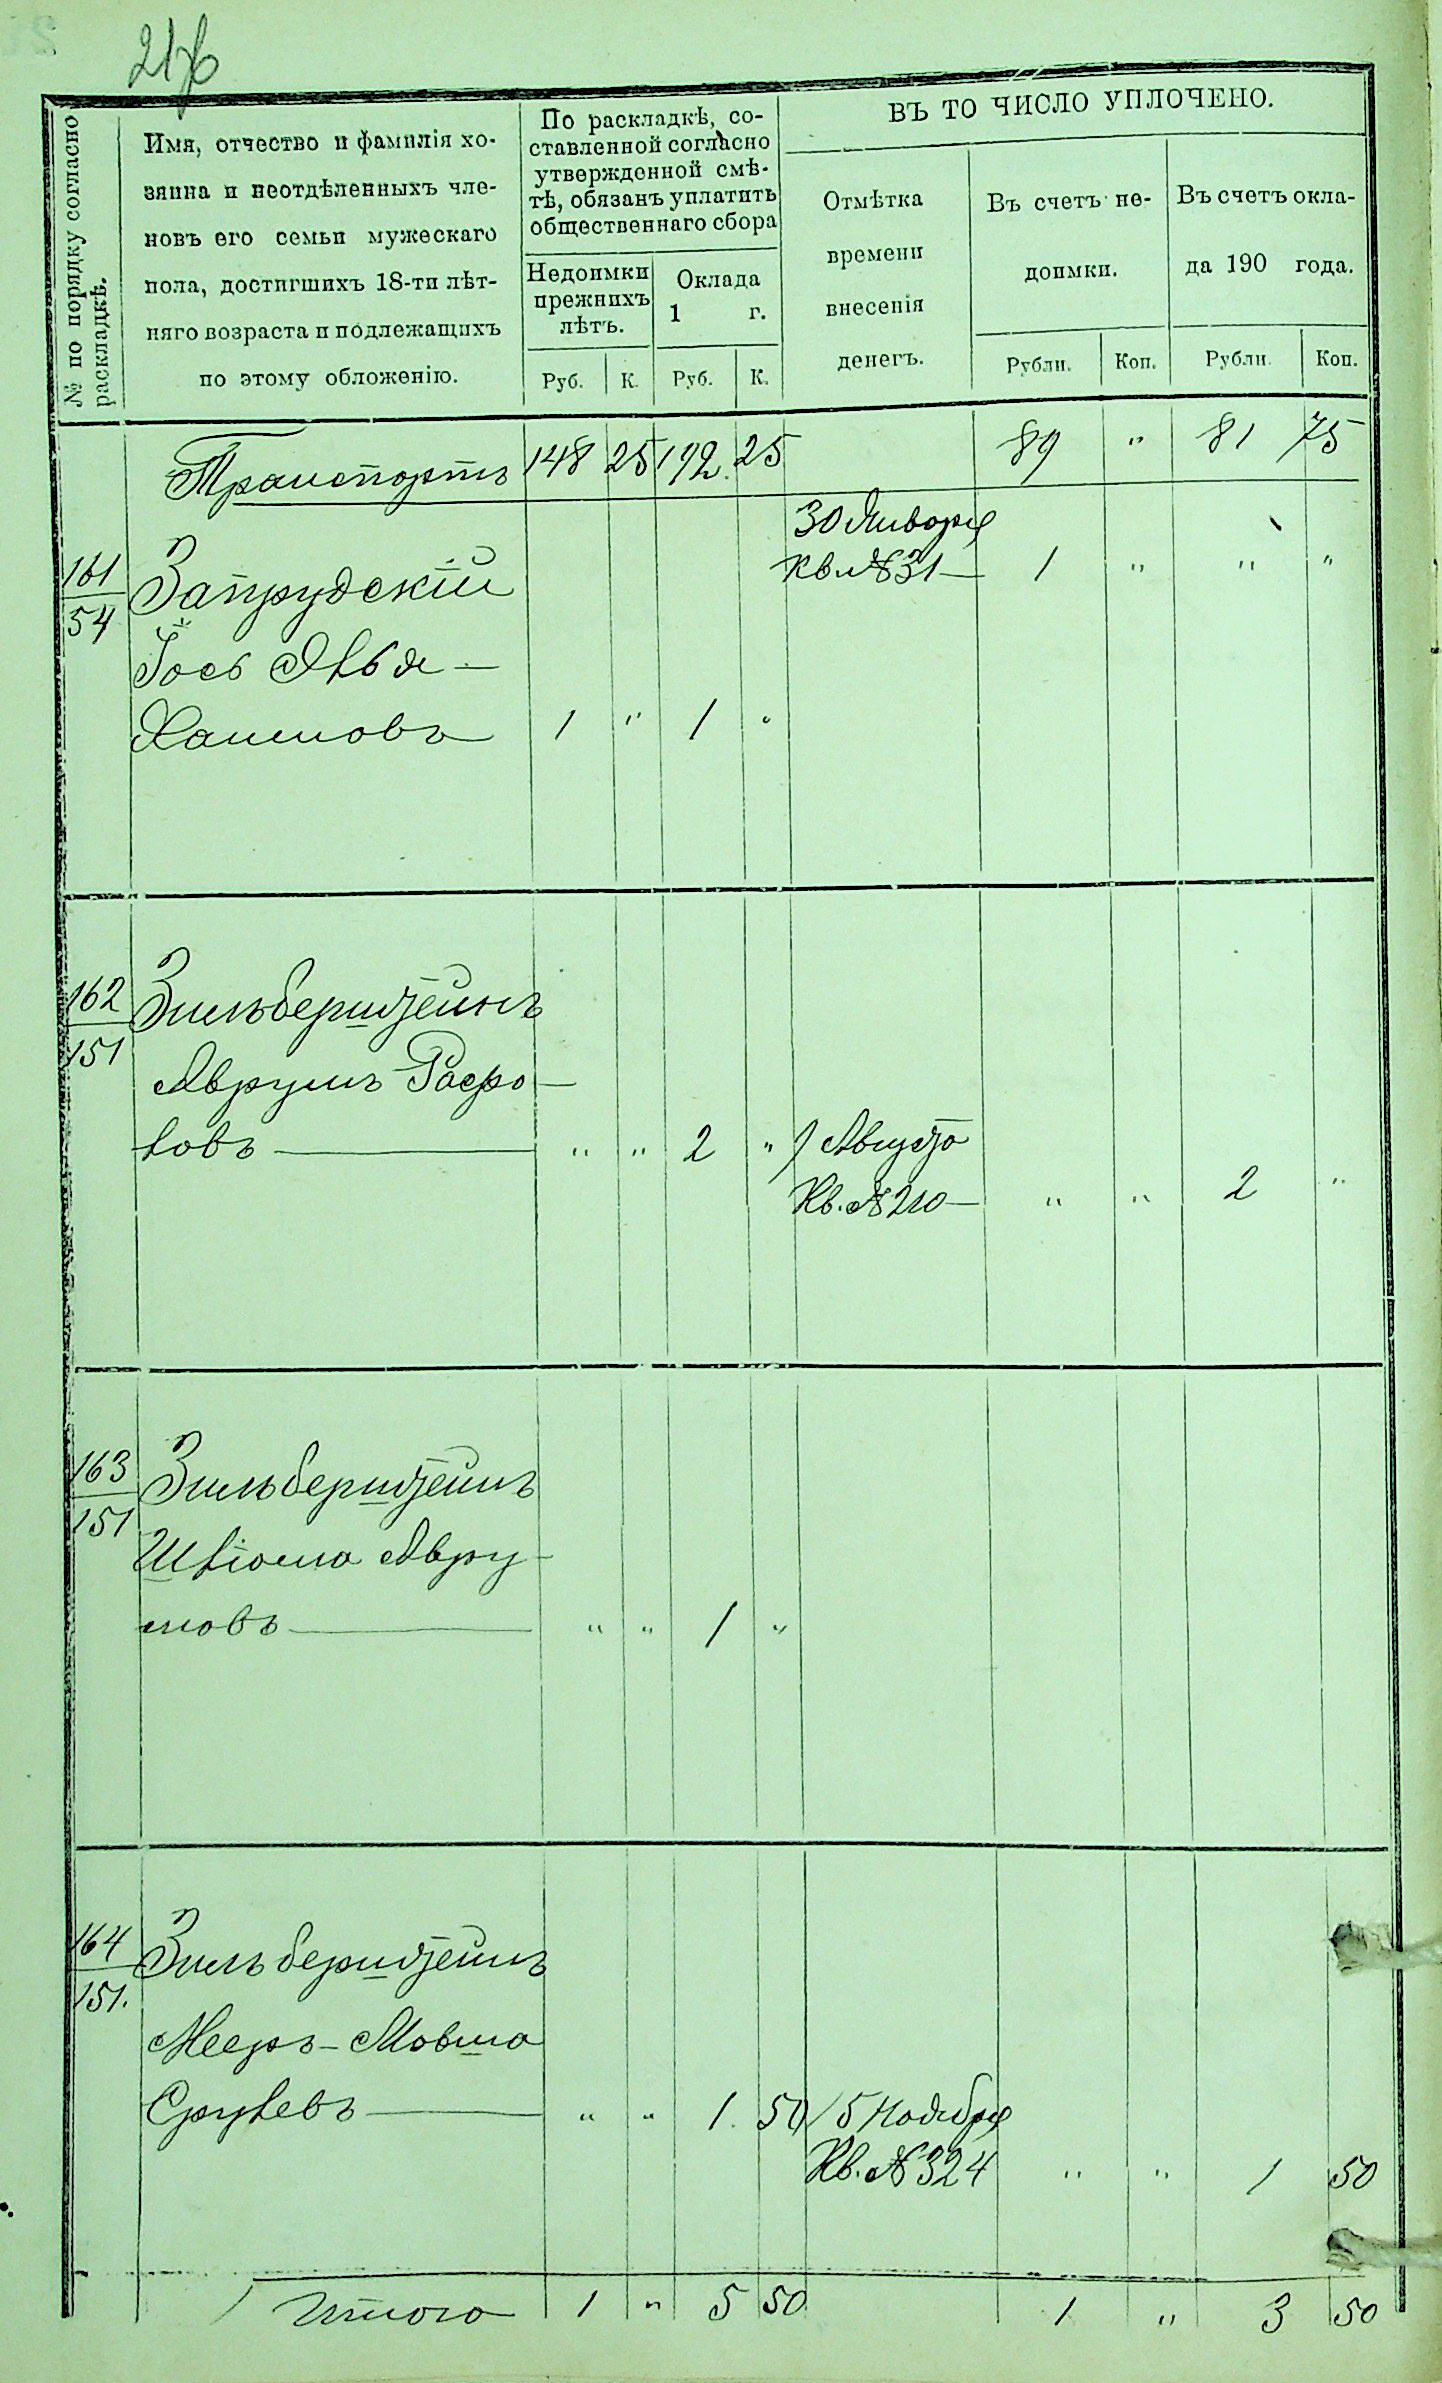 217б
№ по порядку согласно
раскладкѣ.
Имя, отчество и фамилія хо-
зяина и неотдѣленныхъ чле-
новъ его семьи мужескаго
пола, достигшихъ 18-ти лѣт-
няго возраста и подлежащихъ
по этому обложенію.
По раскладкѣ, со-
ставленной согласно
утвержденной смѣ-
тѣ, обязанъ уплатить
общественнаго сбора
Недоимки
прежнихъ
лѣтъ.
Оклада
1 г.
Руб. К. Руб. К.
ВЪ ТО ЧИСЛО УПЛОЧЕНО.
Отмѣтка
времени
внесенія
денегъ.
Въ счетъ не-
доимки.
Въ счетъ окла-
да 190 года.
Рубли. Коп. Рубли. Коп.
Транспортъ 148 25 192. 25 89 " 81 75
30 Января
161 Запрудскій Кв. №31— 1 " " "
54
Іось Лѣбя—
Хаимовъ 1 " 1 "
162 Зильберштейнъ
151
Аврумъ Сро—
ловъ — " " 2 " 1 Августа
Кв. №210— " " 2 "
163 Зильберштейнъ
151
Шліома Авру-
мовъ — " " 1 "
164 Зильберштейнъ
151.
Мееръ-Мовша
Срулевъ — " " 1. 50 15 Ноября
Кв. №324 " " 1 50
Итого 1 " 5 50 1 " 3 50